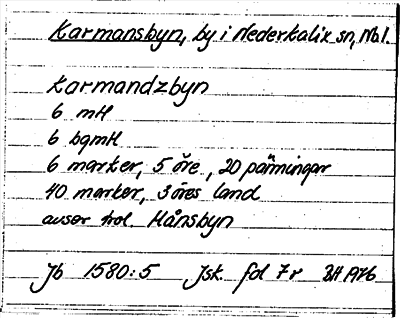 Karmansbyn, by i Nederkalix sn, Nbl.
Karmandzbyn
6 mH
6 bgmH
6 marker, 5 öre, 20 pänningar
40 marker, 3 öres land
avser trol. Månsbyn
Jb 1580:5 Jsk. fol 7r BH A76